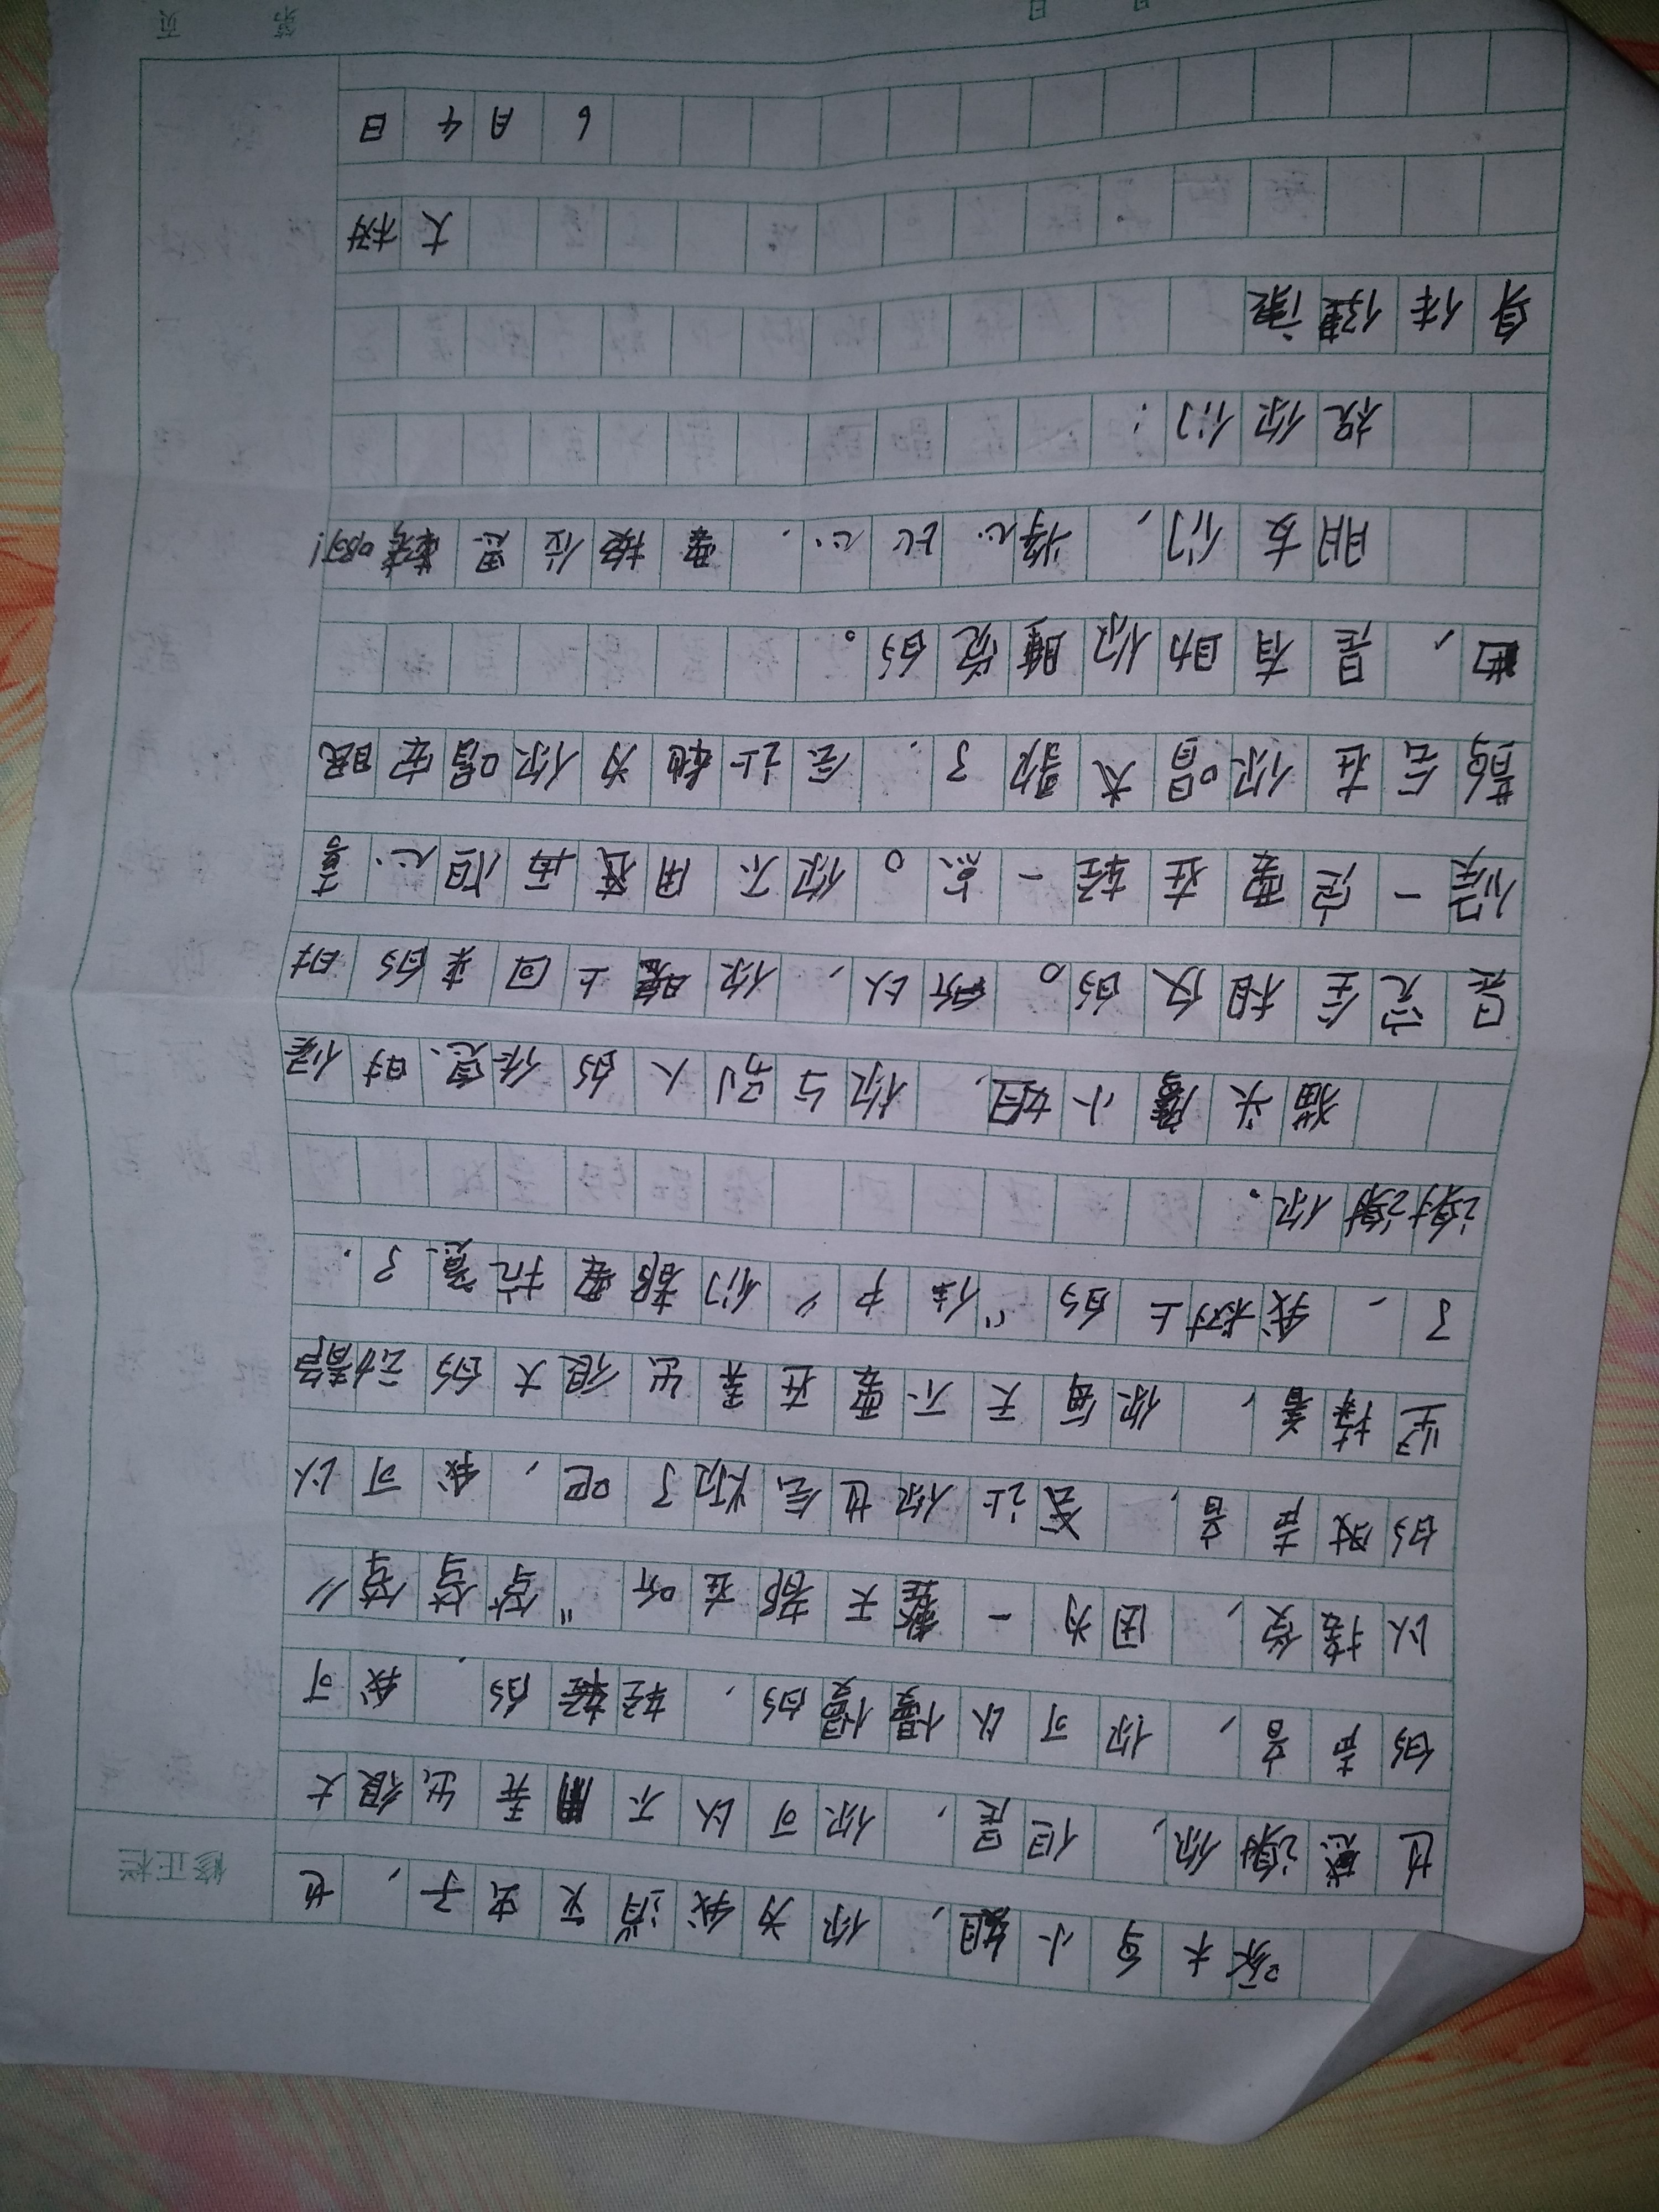 修正栏
啄木鸟小姐，你为我消灭虫子，也
也感谢你，但是，你可以不弄出很大
的声音，你可以慢慢的，轻轻的，我可
以接受，因为一整天都在听“笃笃笃”
的敲声音，若让你也会烦了吧，我可以
坚持着，你每天不要在弄出很大的动静
了，我树上的“住户”们都要抗意了．
谢谢你。
猫头鹰小姐，你与别人的作息时候
是完全相反的。所以，你晚上回来的时
候一定要在轻一点。你不用在再担心喜
鹊会在你唱大歌了，会让她为你唱安眠
曲，是有助你睡觉的。
朋友们，将心比心，要换位思考哟！
祝你们：
身体健康
大树
6月4日
第 页